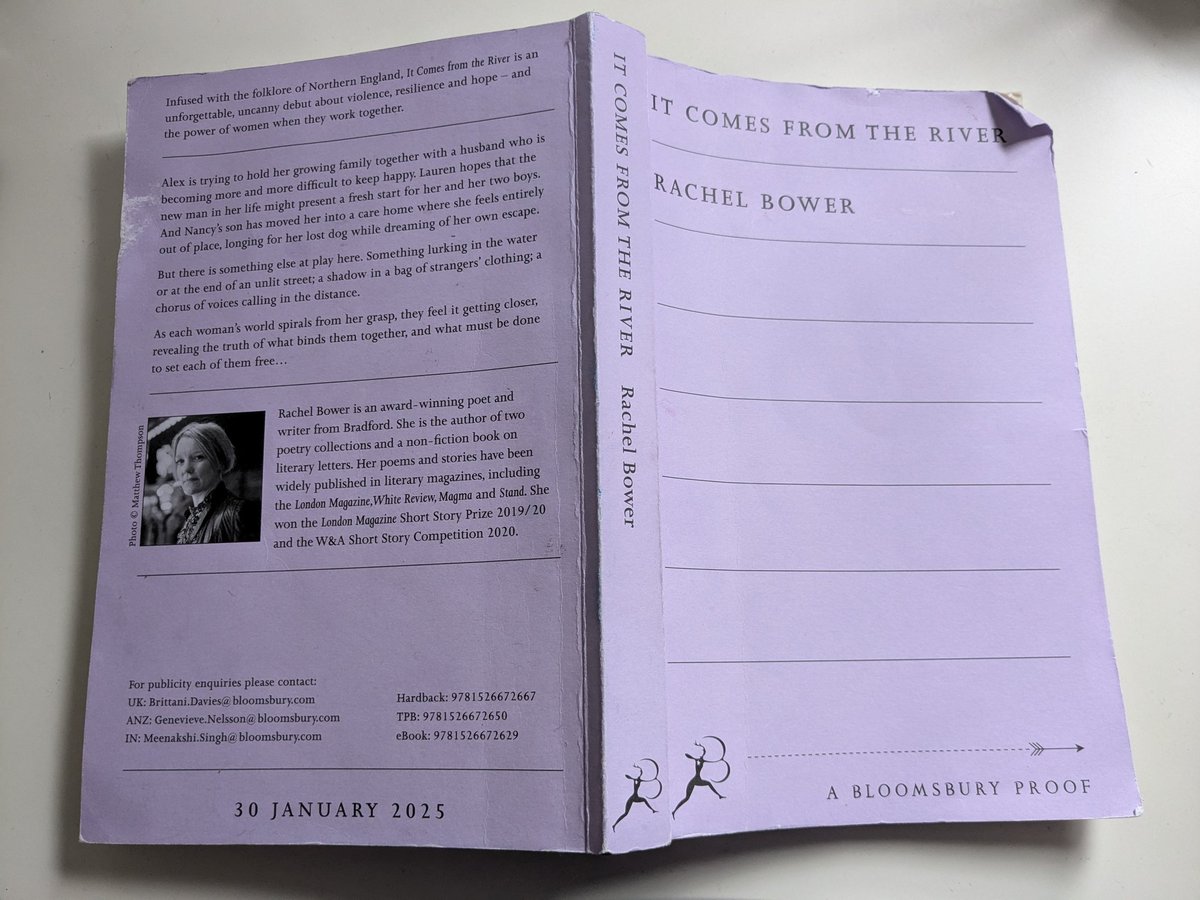 Infused with the folklore of Northern England, It Comes from the River is an
unforgettable, uncanny debut about violence, resilience and hope – and
the power of women when they work together.
Alex is trying to hold her growing family together with a husband who is
becoming more and more difficult to keep happy. Lauren hopes that the
new man in her life might present a fresh start for her and her two boys.
And Nancy's son has moved her into a care home where she feels entirely
out of place, longing for her lost dog while dreaming of her own escape.
But there is something else at play here. Something lurking in the water
or at the end of an unlit street; a shadow in a bag of strangers' clothing; a
chorus of voices calling in the distance.
As each woman's world spirals from her grasp, they feel it getting closer,
revealing the truth of what binds them together, and what must be done
to set each of them free…
Photo © Matthew Thompson
Rachel Bower is an award-winning poet and
writer from Bradford. She is the author of two
poetry collections and a non-fiction book on
literary letters. Her poems and stories have been
widely published in literary magazines, including
the London Magazine, White Review, Magma and Stand. She
won the London Magazine Short Story Prize 2019/20
and the W&A Short Story Competition 2020.
For publicity enquiries please contact:
UK: Brittani.Davies@bloomsbury.com
ANZ: Genevieve.Nelsson@bloomsbury.com
IN: Meenakshi.Singh@bloomsbury.com
Hardback: 9781526672667
TPB: 9781526672650
eBook: 9781526672629
30 JANUARY 2025
IT COMES FROM THE RIVER Rachel Bower
IT COMES FROM THE RIVER
RACHEL BOWER
A BLOOMSBURY PROOF